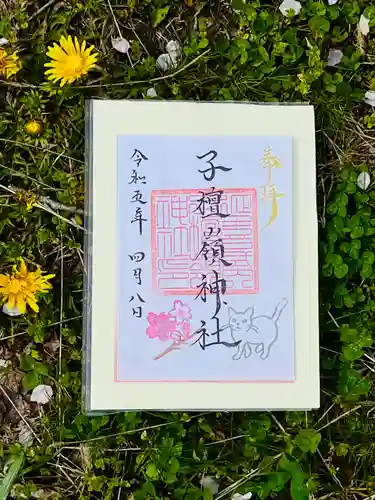 奉拝
子檀嶺神社
令和五年 四月八日